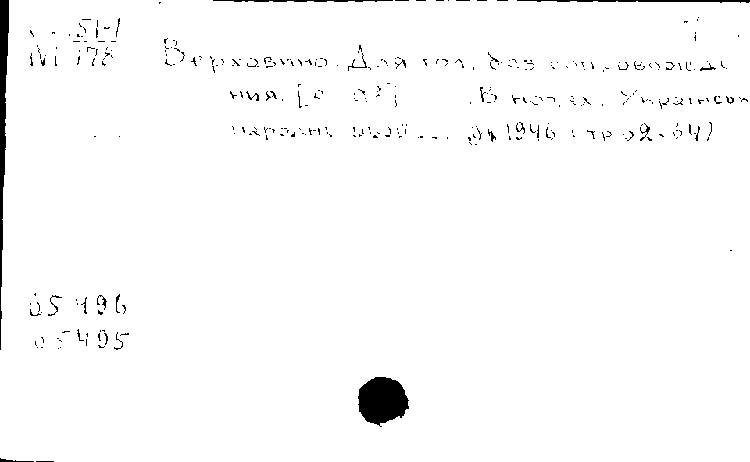 51-1
М 178
Верховино. Для гол. без сопровожде
ния. [e - a²] В нотах. Українськ
народні ... 1946 стр 62-64)
05496
05495